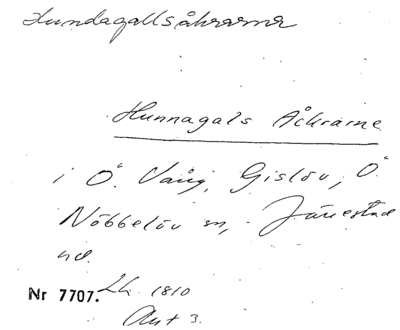 Hundagallsåkrarna
Hunnagals Åkrarne
i Ö. Vång, Gislöv, Ö.
Nöbbelöv sn, Järrestad
hd.
Nr 7707. Lh. 1810
Akt 3.